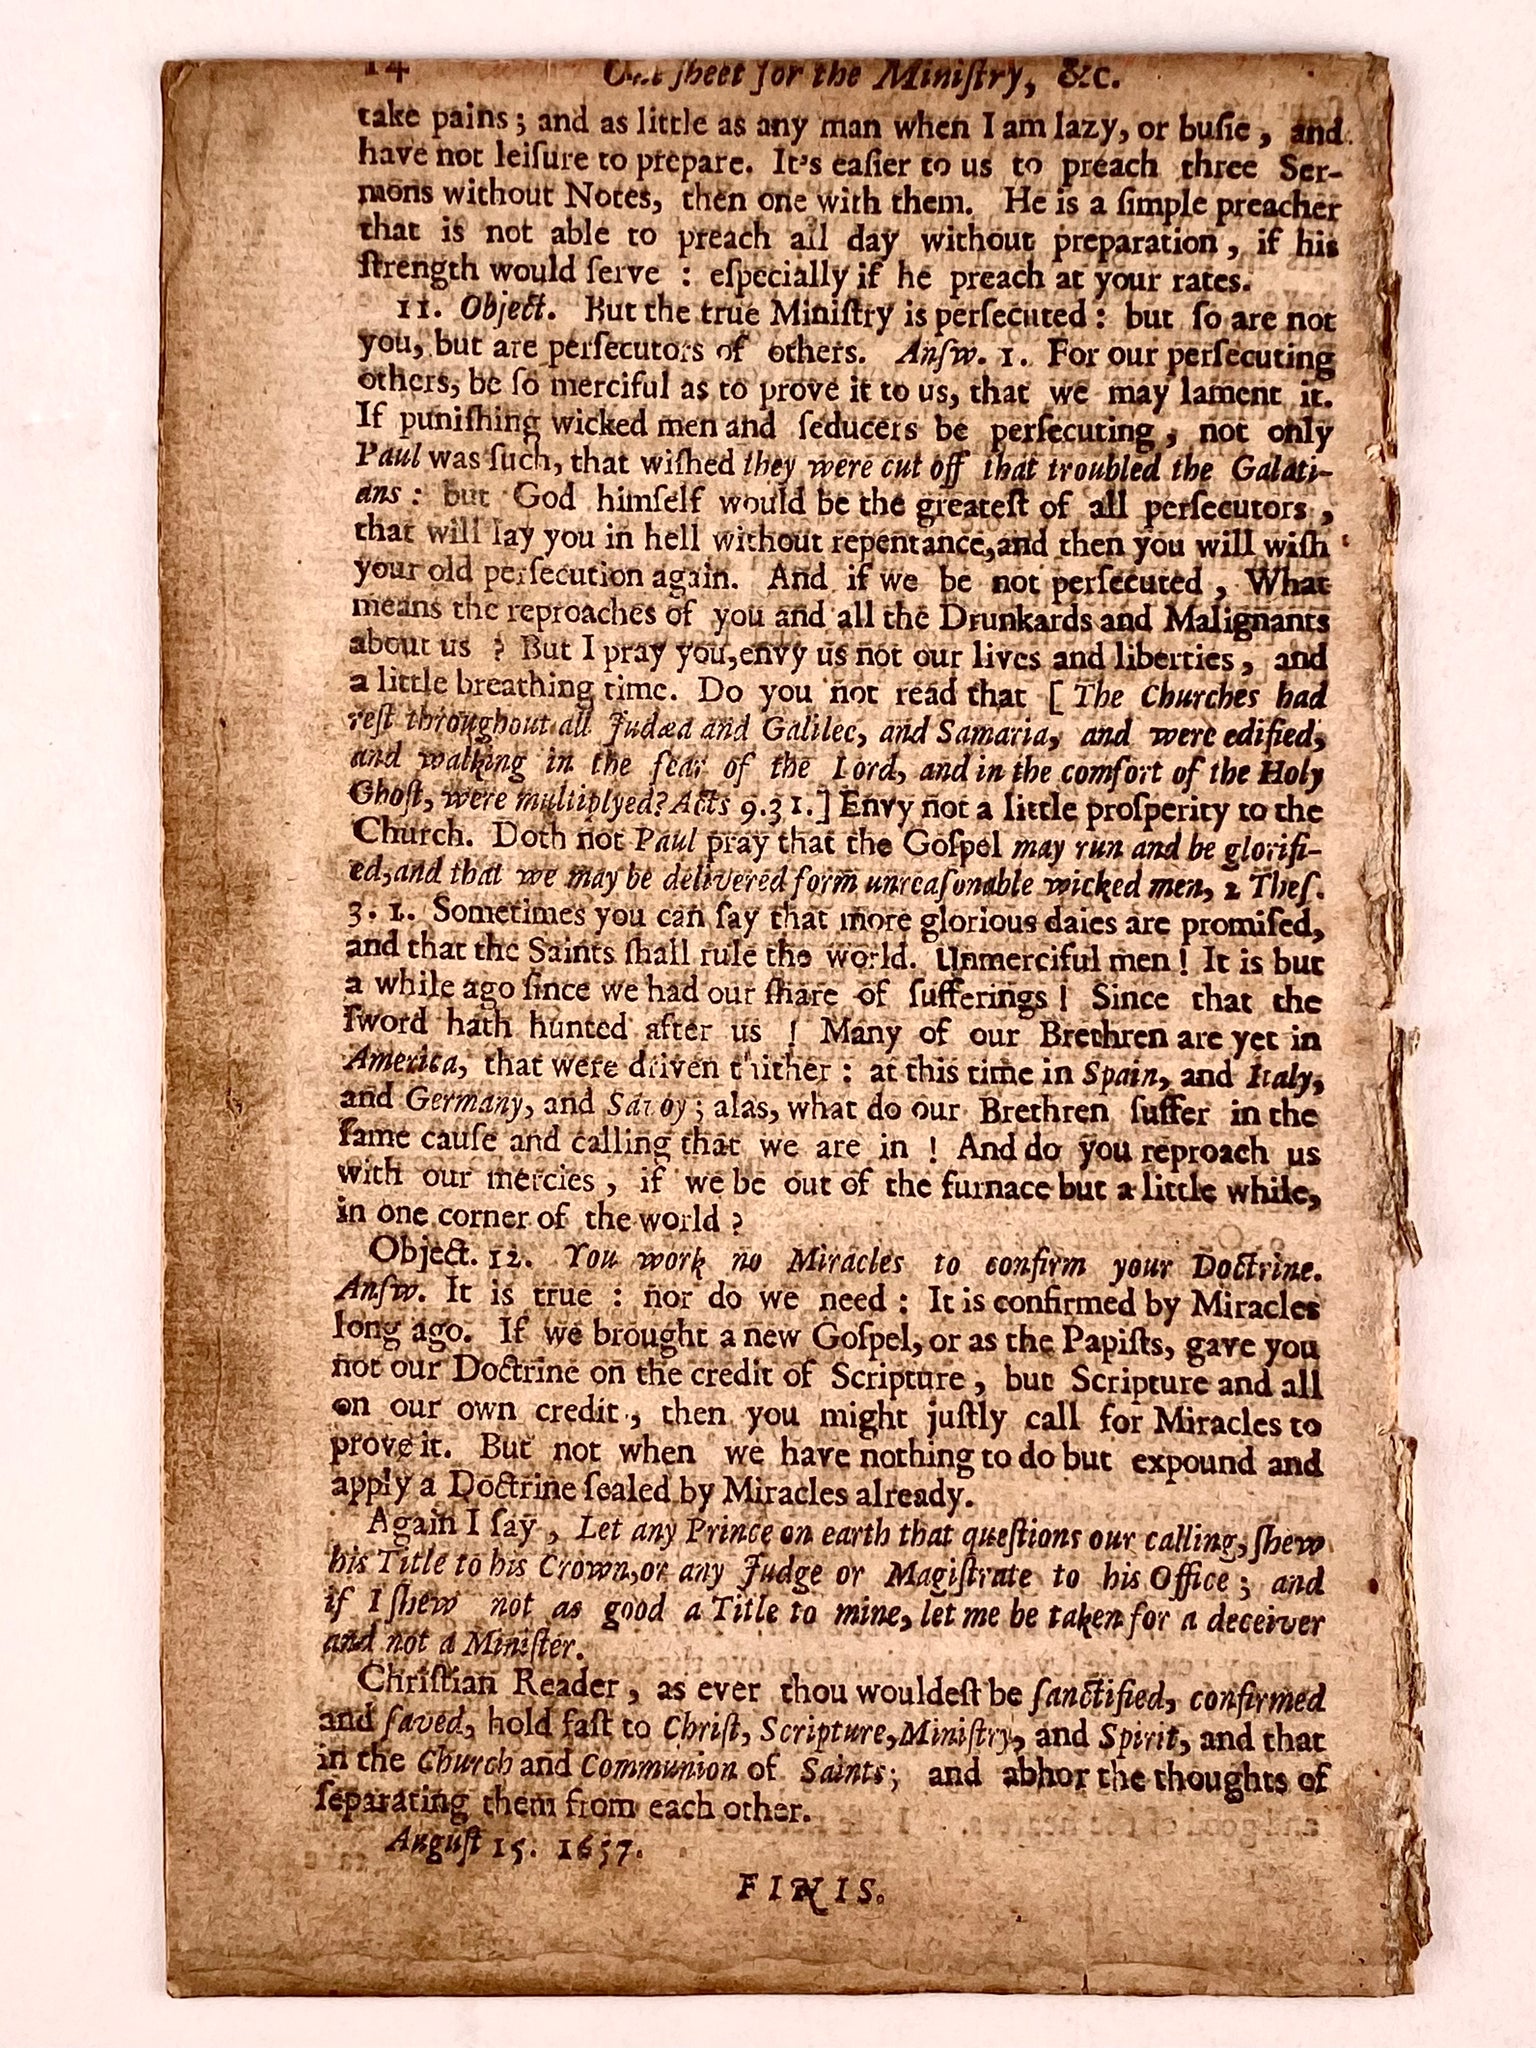 14 One sheet for the Miniſtry, &c.
take pains; and as little as any man when I am lazy, or buſie, and
have not leiſure to prepare. It's eaſier to us to preach three Ser-
mons without Notes, then one with them. He is a ſimple preacher
that is not able to preach all day without preparation, if his
ſtrength would ſerve : eſpecially if he preach at your rates.
11. Object. But the true Miniſtry is perſecuted : but ſo are not
you, but are perſecutors of others. Anſw. 1. For our perſecuting
others, be ſo merciful as to prove it to us, that we may lament it.
If puniſhing wicked men and ſeducers be perſecuting, not only
Paul was ſuch, that wiſhed they were cut off that troubled the Galati-
ans : but God himſelf would be the greateſt of all perſecutors,
that will lay you in hell without repentance,and then you will wiſh
your old perſecution again. And if we be not perſecuted, What
means the reproaches of you and all the Drunkards and Malignants
about us ? But I pray you,envy us not our lives and liberties, and
a little breathing time. Do you not read that [ The Churches had
reſt throughout all Judæa and Galilee, and Samaria, and were edified,
and walking in the fear of the Lord, and in the comfort of the Holy
Ghoſt, were multiplyed? Acts 9.31.] Envy not a little proſperity to the
Church. Doth not Paul pray that the Goſpel may run and be glorifi-
ed,and that we may be delivered form unreaſonable wicked men, 2 Theſ.
3. 1. Sometimes you can ſay that more glorious daies are promiſed,
and that the Saints ſhall rule the world. Unmerciful men ! It is but
a while ago ſince we had our ſhare of ſufferings ! Since that the
ſword hath hunted after us ! Many of our Brethren are yet in
America, that were driven thither : at this time in Spain, and Italy,
and Germany, and Savoy; alas, what do our Brethren ſuffer in the
ſame cauſe and calling that we are in ! And do you reproach us
with our mercies, if we be out of the furnace but a little while,
in one corner of the world ?
Object. 12. You work no Miracles to confirm your Doctrine.
Anſw. It is true : nor do we need : It is confirmed by Miracles
long ago. If we brought a new Goſpel, or as the Papiſts, gave you
not our Doctrine on the credit of Scripture, but Scripture and all
on our own credit, then you might juſtly call for Miracles to
prove it. But not when we have nothing to do but expound and
apply a Doctrine ſealed by Miracles already.
Again I ſay, Let any Prince on earth that queſtions our calling, ſhew
his Title to his Crown,or any Judge or Magiſtrate to his Office; and
if I ſhew not as good a Title to mine, let me be taken for a deceiver
and not a Miniſter.
Chriſtian Reader, as ever thou wouldeſt be ſanctified, confirmed
and ſaved, hold faſt to Chriſt, Scripture,Miniſtry, and Spirit, and that
in the Church and Communion of Saints; and abhor the thoughts of
ſeparating them from each other.
Auguſt 15. 1657.
FINIS.